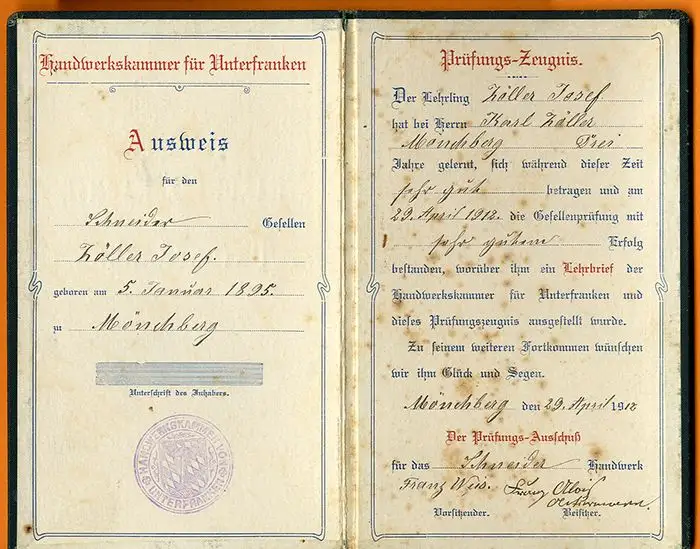 Handwerkskammer für Unterfranken
Ausweis
für den
Schneider Gesellen
Zöller Josef.
geboren am 5. Januar 1895.
zu Mönchberg
Unterschrift des Inhabers.
HANDWERKSKAMMER
UNTERFRANKEN
Prüfungs-Zeugnis.
Der Lehrling Zöller Josef
hat bei Herrn Karl Zöller
Mönchberg Drei
Jahre gelernt, sich während dieser Zeit
sehr gut betragen und am
29. April 1912. die Gesellenprüfung mit
sehr gutem Erfolg
bestanden, worüber ihm ein Lehrbrief der
Handwerkskammer für Unterfranken und
dieses Prüfungszeugnis ausgestellt wurde.
Zu seinem weiteren Fortkommen wünschen
wir ihm Glück und Segen.
Mönchberg den 29. April 1912
Der Prüfungs-Ausschuß
für das Schneider Handwerk
Franz Alois
Vorsitzender. Beisitzer.